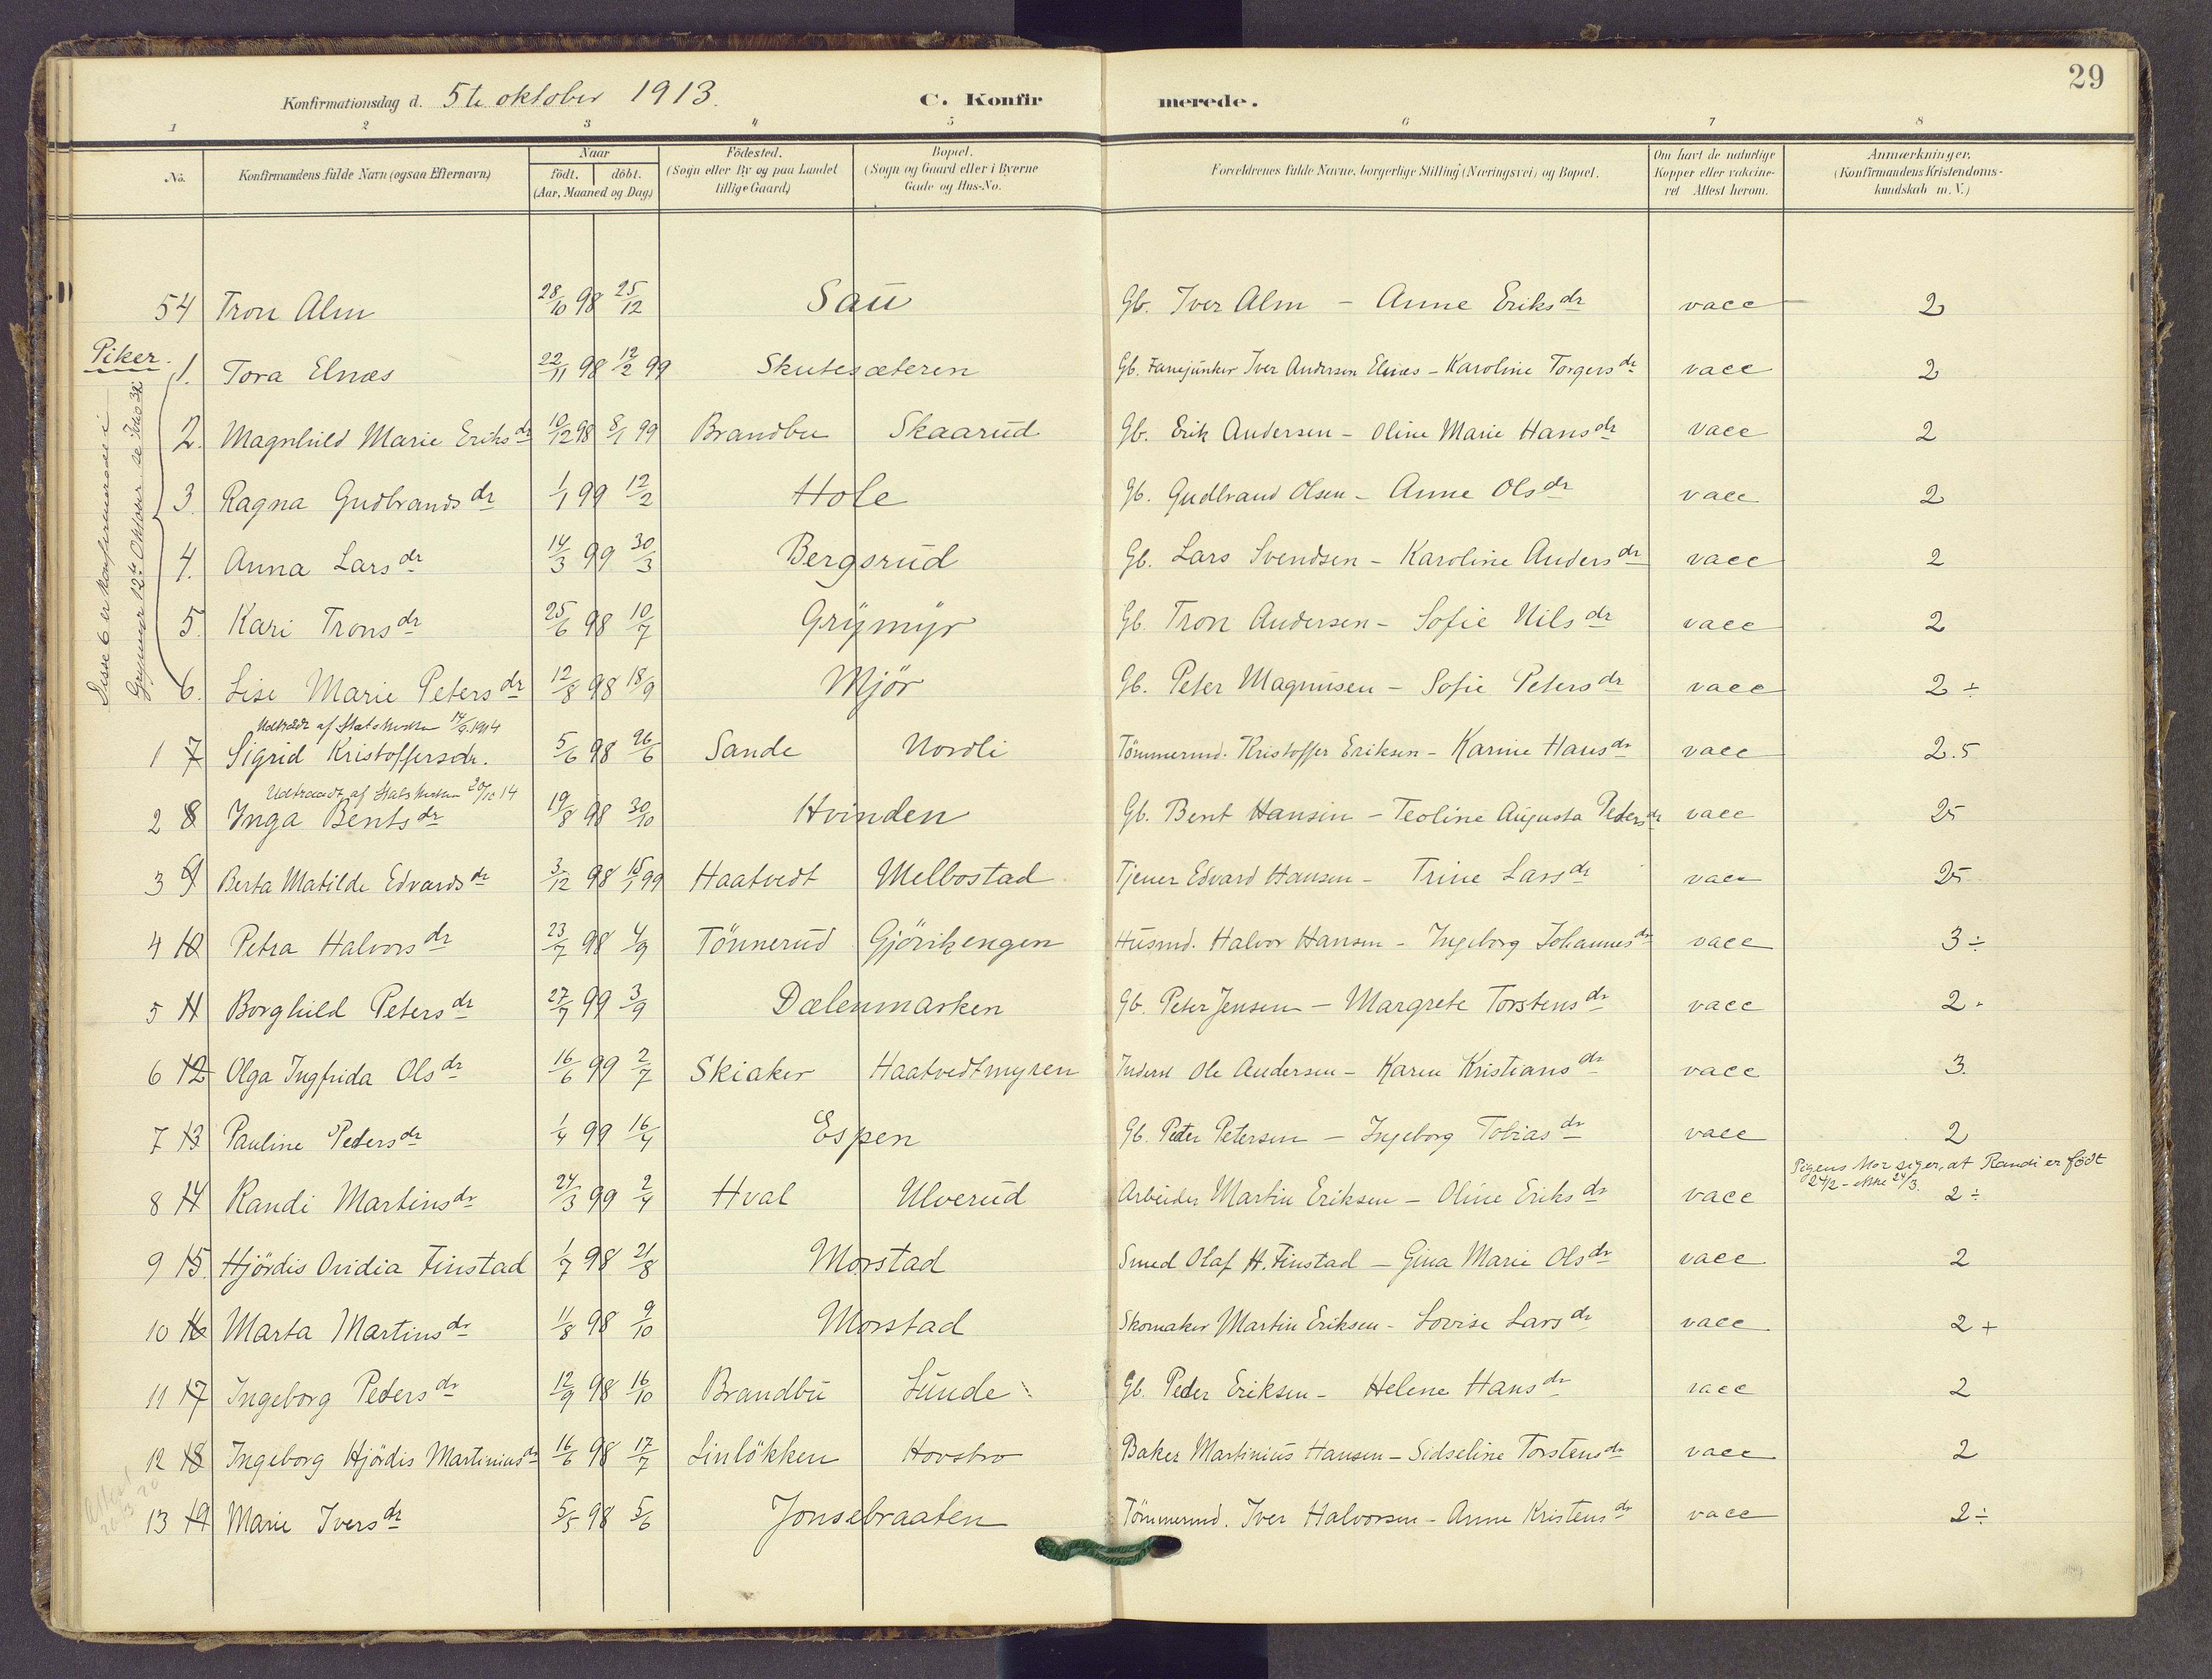 29
Konfirmationsdag d. 5te oktober 1913. C. Konfirmerede.
1 2 3 4 5 6 7 8
No. Konfirmandens fulde Navn (ogsaa Efternavn) Naar født. døbt. (Aar, Maaned og Dag) Fødested. (Sogn eller By og paa Landet tillige Gaard) Bopæl. (Sogn og Gaard eller i Byerne Gade og Hus-No. Forældrenes fulde Navne, borgerlige Stilling (Næringsvei) og Bopæl. Om havt de naturlige Kopper eller vakcineret Attest herom. Anmærkninger. (Konfirmandens Kristendomskundskab m. V.)
54 Tron Alm 28/10 98 25/12 Sau Gb. Iver Alm - Anne Eriksdr vacc 2
Piker.
Disse 6 er konfirmerede i
Grymyr 12te Oktober se
1. Tora Elnæs 22/11 98 12/2 99 Skutesæteren Gb. Fanejunker Iver Andersen Elnæs - Karoline Torgersdr vacc 2
2. Magnhild Marie Eriksdr 10/12 98 8/1 99 Brandbu Skaarud Gb. Erik Andersen - Oline Marie Hansdr vacc 2
3. Ragna Gudbrandsdr 1/1 99 12/2 Hole Gb. Gudbrand Olsen - Anne Olsdr vacc 2
4. Anna Larsdr 14/3 99 30/3 Bergsrud Gb. Lars Svendsen - Karoline Andersdr vacc 2
5. Kari Tronsdr 25/6 98 10/7 Grymyr Gb. Tron Andersen - Sofie Nilsdr vacc 2
6. Lise Marie Petersdr 12/8 98 18/9 Mjör Gb. Peter Magnusen - Sofie Petersdr vacc 2 ÷
Udtraadt af Statskirken 14/9.1914
1 7 Sigrid Kristoffersdr. 5/6 98 26/6 Sande Nordli Tömmermd. Kristoffer Eriksen - Karine Hansdr vacc 2.5
Udtraadt af Statskirken 20/10 14
2 8 Inga Bentsdr 19/8 98 30/10 Hvinden Gb. Bent Hansen - Teoline Augusta Pedersdr vacc 25
3 9 Berta Matilde Edvardsdr 3/12 98 15/1 99 Haatvedt Melbostad Tjener Edvard Hansen - Trine Larsdr vacc 25
4 10 Petra Halvorsdr 23/7 98 4/9 Tönnerud Gjövikengen Husmd. Halvor Hansen - Ingeborg Johannesdr vacc 3 ÷
5 11 Borghild Petersdr 27/7 99 3/9 Dælenmarken Gb. Peter Jensen - Margrete Torstensdr vacc 2 -
6 12 Olga Ingfrida Olsdr 16/6 99 2/7 Skiaker Haatvedtmyren Inderst Ole Andersen - Karen Kristiansdr vacc 3.
7 13 Pauline Pedersdr 1/4 99 16/4 Espen Gb. Peder Petersen - Ingeborg Tobiasdr vacc 2
Pigens Mor siger, at Randi er født
24/2 - ikke 24/3.
8 14 Randi Martinsdr 24/3 99 2/4 Hval Ulverud Arbeider Martin Eriksen - Oline Eriksdr vacc 2 ÷
9 15. Hjördis Ovidia Finstad 1/7 98 21/8 Morstad Smed Olaf H. Finstad - Gina Marie Olsdr vacc 2
10 16 Marta Martinsdr 11/8 98 9/10 Morstad Skomaker Martin Eriksen - Lovise Larsdr vacc 2 +
11 17 Ingeborg Pedersdr 12/9 98 16/10 Brandbu Lunde Gb. Peder Eriksen - Helene Hansdr vacc 2
12 18 Ingeborg Hjördis Martiniusdr 16/6 98 17/7 Linlökken Hovsbro Baker Martinius Hansen - Sidseline Torstensdr vacc 2
Attest
20-3 20
13 19 Marie Iversdr 5/5 98 5/6 Jonsebraaten Tömmermd. Iver Halvorsen - Anne Kristensdr vacc 2 ÷